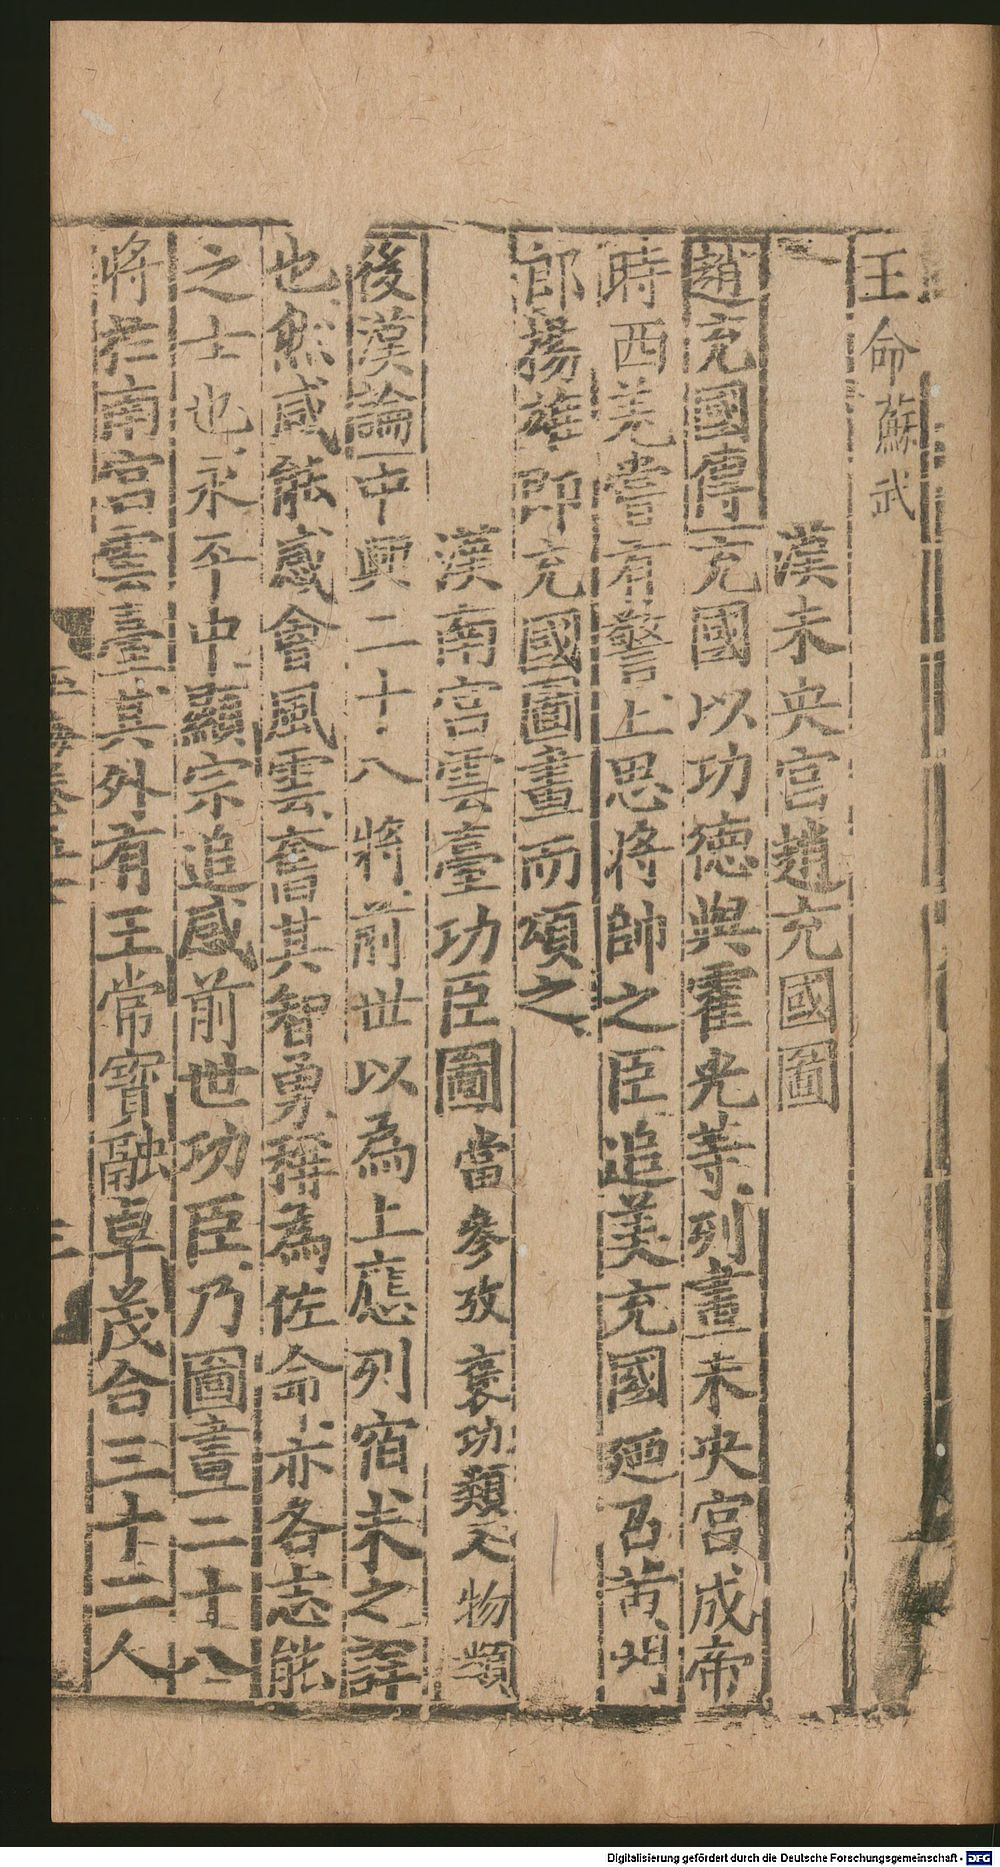 王命蘇武
漢未央宮趙充國圖
趙充國傳充國以功德與霍光等列畫未央宮成帝
時西羌嘗有警上思將帥之臣追美充國廼召黃門
郎揚雄即充國圖畫而頌之
漢南宮雲臺功臣圖當參攷褒功類天物類
後漢論中興二十八將前世以為上應列宿未之詳
也然咸能感會風雲奮其智勇稱為佐命亦各志能
之士也永平中顯宗追感前世功臣乃圖畫二十八
將於南宮雲臺其外有王常竇融卓茂合三十二人
玉海卷五十
三
Digitalisierung gefördert durch die Deutsche Forschungsgemeinschaft - DFG